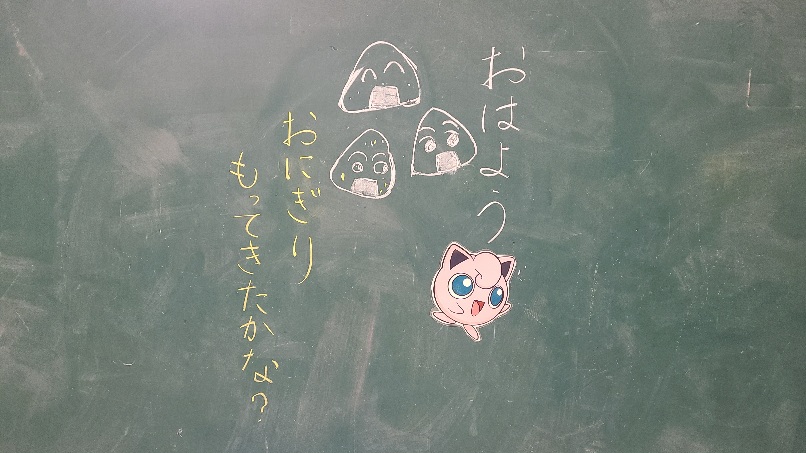 おはよう
おにぎり
もってきたかな?